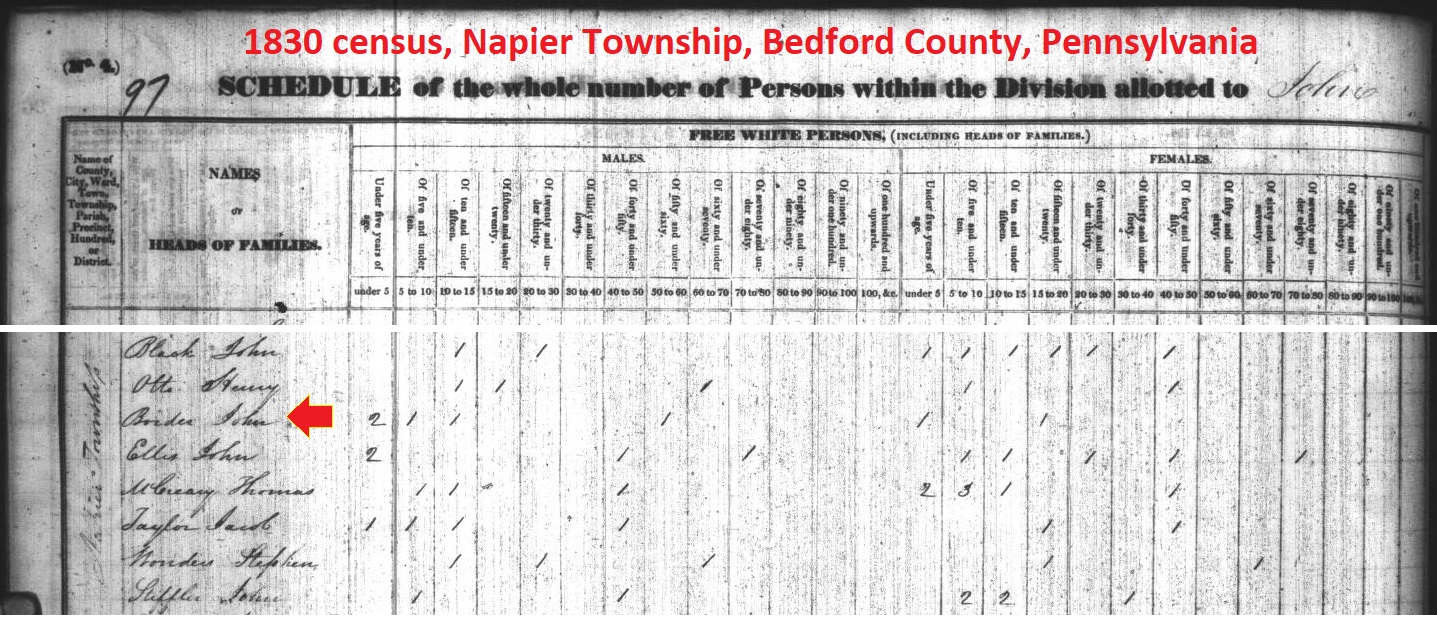 1830 census, Napier Township, Bedford County, Pennsylvania
(No. 4.)
97 SCHEDULE of the whole number of Persons within the Division allotted to John
FREE WHITE PERSONS, (INCLUDING HEADS OF FAMILIES.)
MALES. FEMALES.
Name of County, City, Ward, Town, Township, Parish, Precinct, Hundred, or District.
NAMES
OF
HEADS OF FAMILIES.
Under five years of age. Of five and under ten. Of ten and under fifteen. Of fifteen and under twenty. Of twenty and under thirty. Of thirty and under forty. Of forty and under fifty. Of fifty and under sixty. Of sixty and under seventy. Of seventy and under eighty. Of eighty and under ninety. Of ninety and under one hundred. Of one hundred and upwards. Under five years of age. Of five and under ten. Of ten and under fifteen. Of fifteen and under twenty. Of twenty and under thirty. Of thirty and under forty. Of forty and under fifty. Of fifty and under sixty. Of sixty and under seventy. Of seventy and under eighty. Of eighty and under ninety. Of ninety and under one hundred.
under 5 5 to 10 10 to 15 15 to 20 20 to 30 30 to 40 40 to 50 50 to 60 60 to 70 70 to 80 80 to 90 90 to 100 100, &c. under 5 5 to 10 10 to 15 15 to 20 20 to 30 30 to 40 40 to 50 50 to 60 60 to 70 70 to 80 80 to 90 90 to 100
Napier Township
Black John 1 1 1 1 1 1 1 1
Otto Henry 1 1 1 1 1
Border John 2 1 1 1 1 1
Ellis John 2 1 1 1 1 1 1 1
McCreary Thomas 1 1 1 2 3 1 1
Taylor Jacob 1 1 1 1 1 1
Wonders Stephen 1 1 1 1 1
Stiffler John 1 1 2 2 1